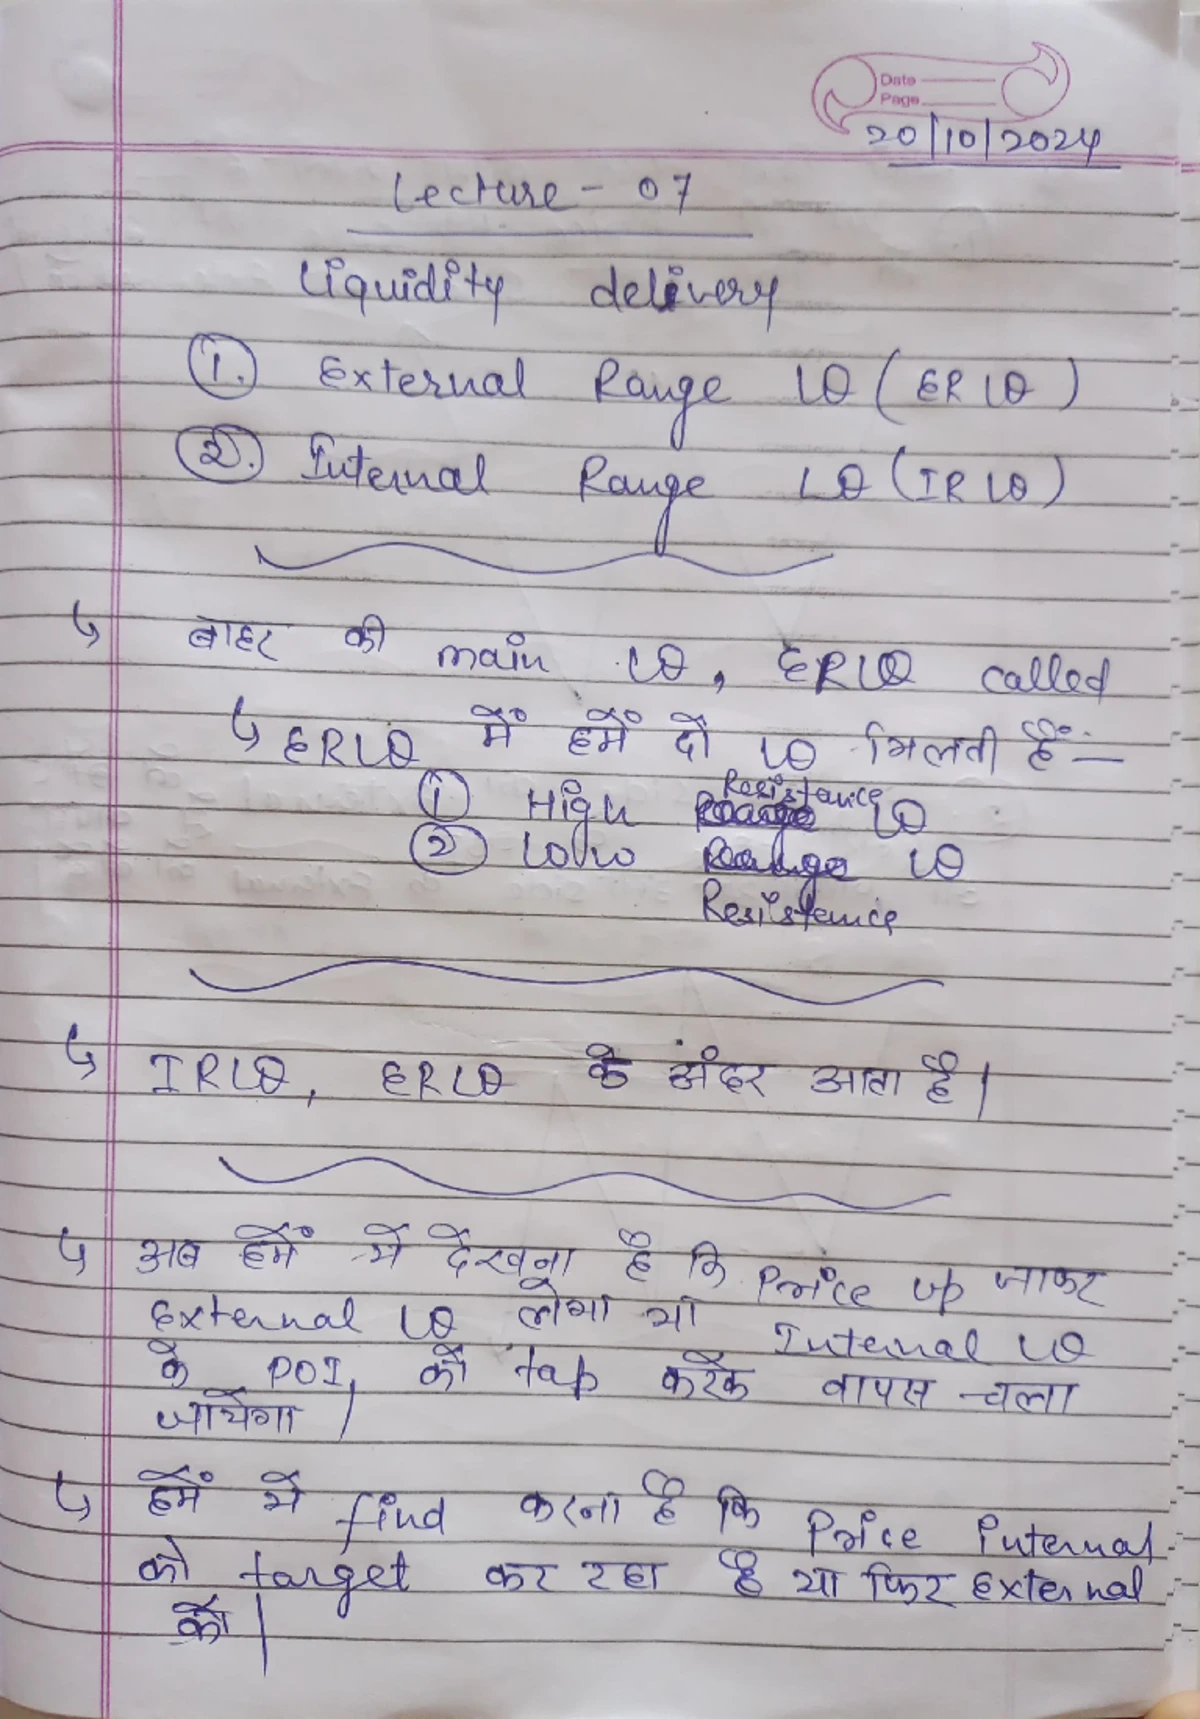 Date
Page
20/10/2024
Lecture - 07
Liquidity delivery
1. External Range LQ (ERLQ)
2. Internal Range LQ (IRLQ)
↳ बाहर की main LQ, ERLQ called
↳ ERLQ में हमें दो LQ मिलती हैं:—
Resistance
① High Range LQ
② Low Range LQ
Resistance
↳ IRLQ, ERLQ के अंदर आता है।
↳ अब हमें ये देखना है कि Price up जाकर
External LQ लेगा या Internal LQ
के POI, को tap करके वापस चला
जायेगा।
↳ हमें ये find करना है कि Price internal
को target कर रहा है या फिर External
को।